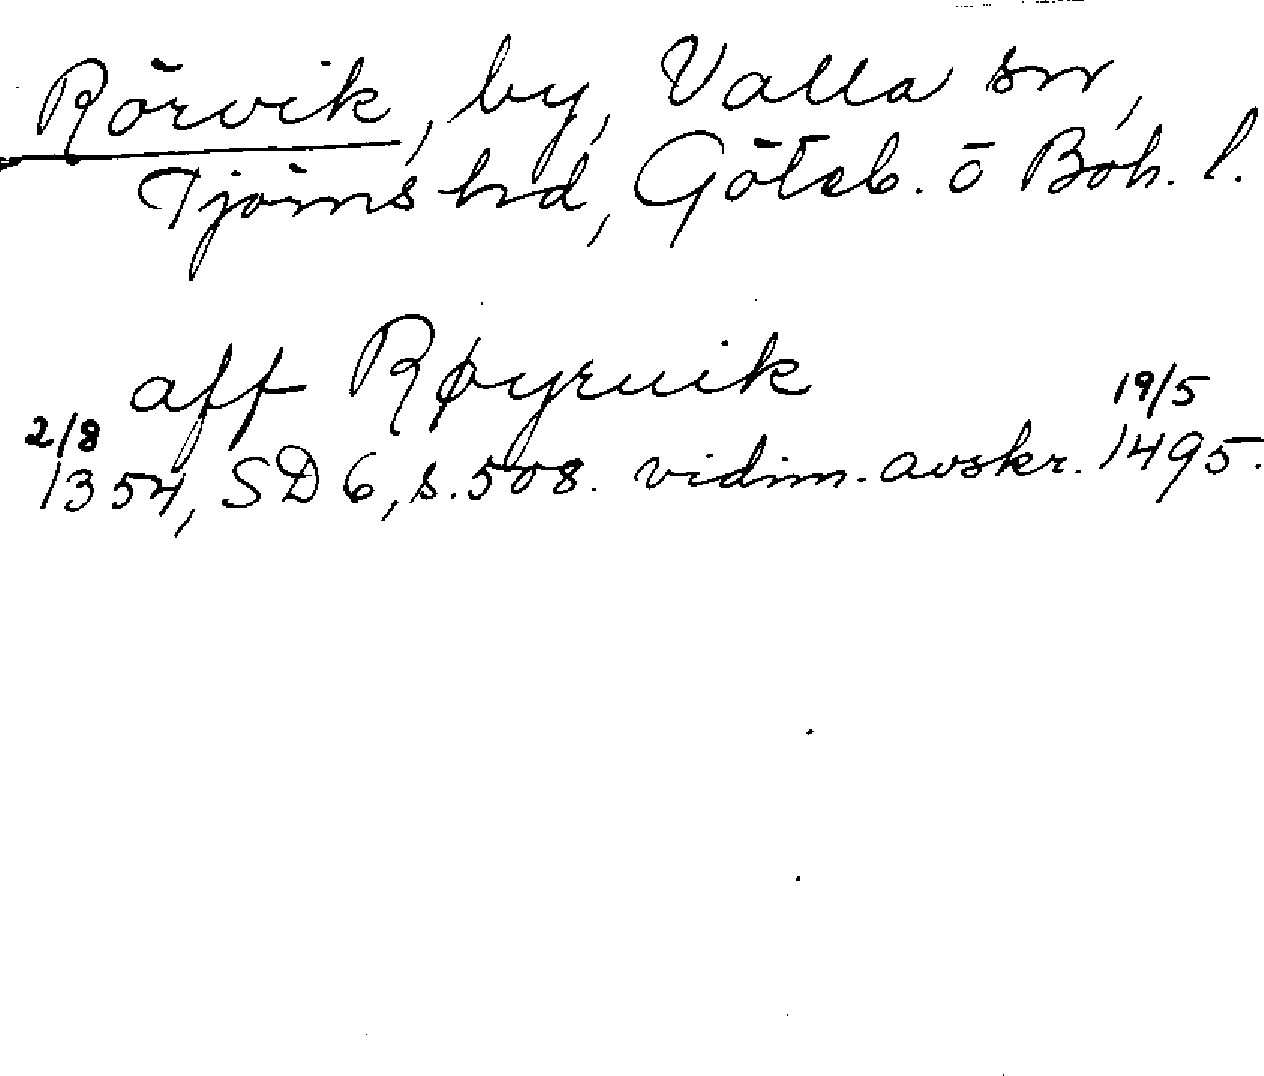 Rörvik, by, Valla sn,
Tjörns hd, Göteb. o Boh. l.
aff Røyruik
2/8 19/5
1354, SD 6, s. 508. vidim. avskr. 1495.